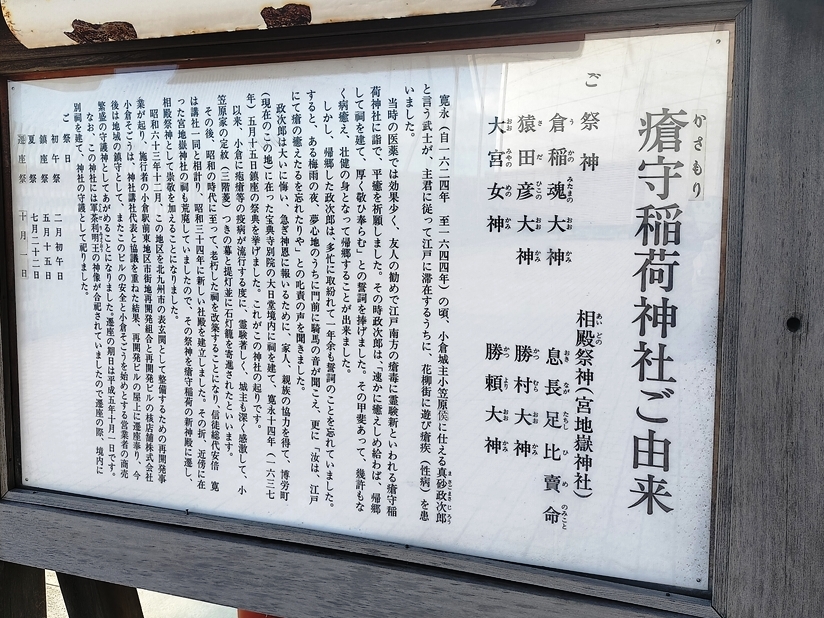 瘡守稲荷神社ご由来
かさもり
ご祭神
倉稲魂大神
うかのみたまのおおかみ
猿田彦大神
さだひこのおおかみ
大宮女神
おおみやのめのかみ
相殿祭神（宮地嶽神社）
あいどの
息長足比賣命
おきながたらしひめのみこと
勝村大神
かつむらおおかみ
勝頼大神
かつよりおおかみ
寛永（自一六二四年　至一六四四年）の頃、小倉城主小笠原侯に仕える真砂政次郎
と言う武士が、主君に従って江戸に滞在するうちに、花柳街に遊び瘡疾（性病）を患
いました。
当時の医薬では効果少く、友人の勧めで江戸南方の瘡毒に霊験新といわれる瘡守稲
荷神社に詣で、平癒を祈願しました。その時政次郎は、「速かに癒えしめ給わば、帰郷
して祠を建て、厚く敬ひ奉らむ」との誓詞を捧げました。その甲斐あって、幾許もな
く病癒え、壮健の身となって帰郷することが出来ました。
しかし、帰郷した政次郎は、多忙に取紛れて一年余も誓詞のことを忘れていました。
すると、ある梅雨の夜、夢心地のうちに門前に騎馬の音が聞こえ、更に「汝は、江戸
にて瘡の癒えたるを忘れたりや」との叱責の声を聞きました。
政次郎は大いに悔い、急ぎ神恩に報いるために、家人、親族の協力を得て、博労町
（現在のこの地）に在った宝典寺別院の大日堂境内に祠を建て、寛永十四年（一六三七
年）五月十五日鎮座の祭典を挙げました。これがこの神社の起りです。
以来、小倉に疱瘡等の疫病が流行する度に、霊験著しく、城主も深く感激して、小
笠原家の定紋（三階菱）つきの幕と提灯並に石灯籠を寄進されたといいます。
その後、昭和の時代に至って、老朽した祠を改築することになり、信徒総代安倍　寛
は講社一同と相計り、昭和三十四年に新しい社殿を建立しました。その折、近傍に在
った宮地嶽神社の祠も荒廃していましたので、その祭神を瘡守稲荷の新神殿に遷し、
相殿祭神として崇敬を加えることになりました。
昭和六十三年十二月、この地区を北九州市の表玄関として整備するための再開発事
業が起り、施行者の小倉駅前東地区市街地再開発組合と再開発ビルの核店舗株式会社
小倉そごうは、神社講社代表と協議を重ねた結果、再開発ビルの屋上に遷座奉り、今
後は地域の鎮守として、またこのビルの安全と小倉そごうを始めとする営業者の商売
繁盛の守護神としてあがめることになりました。遷座の期日は平成五年十月一日です。
なお、この神社には軍荼利明王の神像が合祀されていましたので遷座の際、境内に
別祠を建て、神社の守護として祀りました。
ご祭日
初午祭　二月初午日
鎮座祭　五月十五日
夏祭　七月二十二日
遷座祭　十月一日